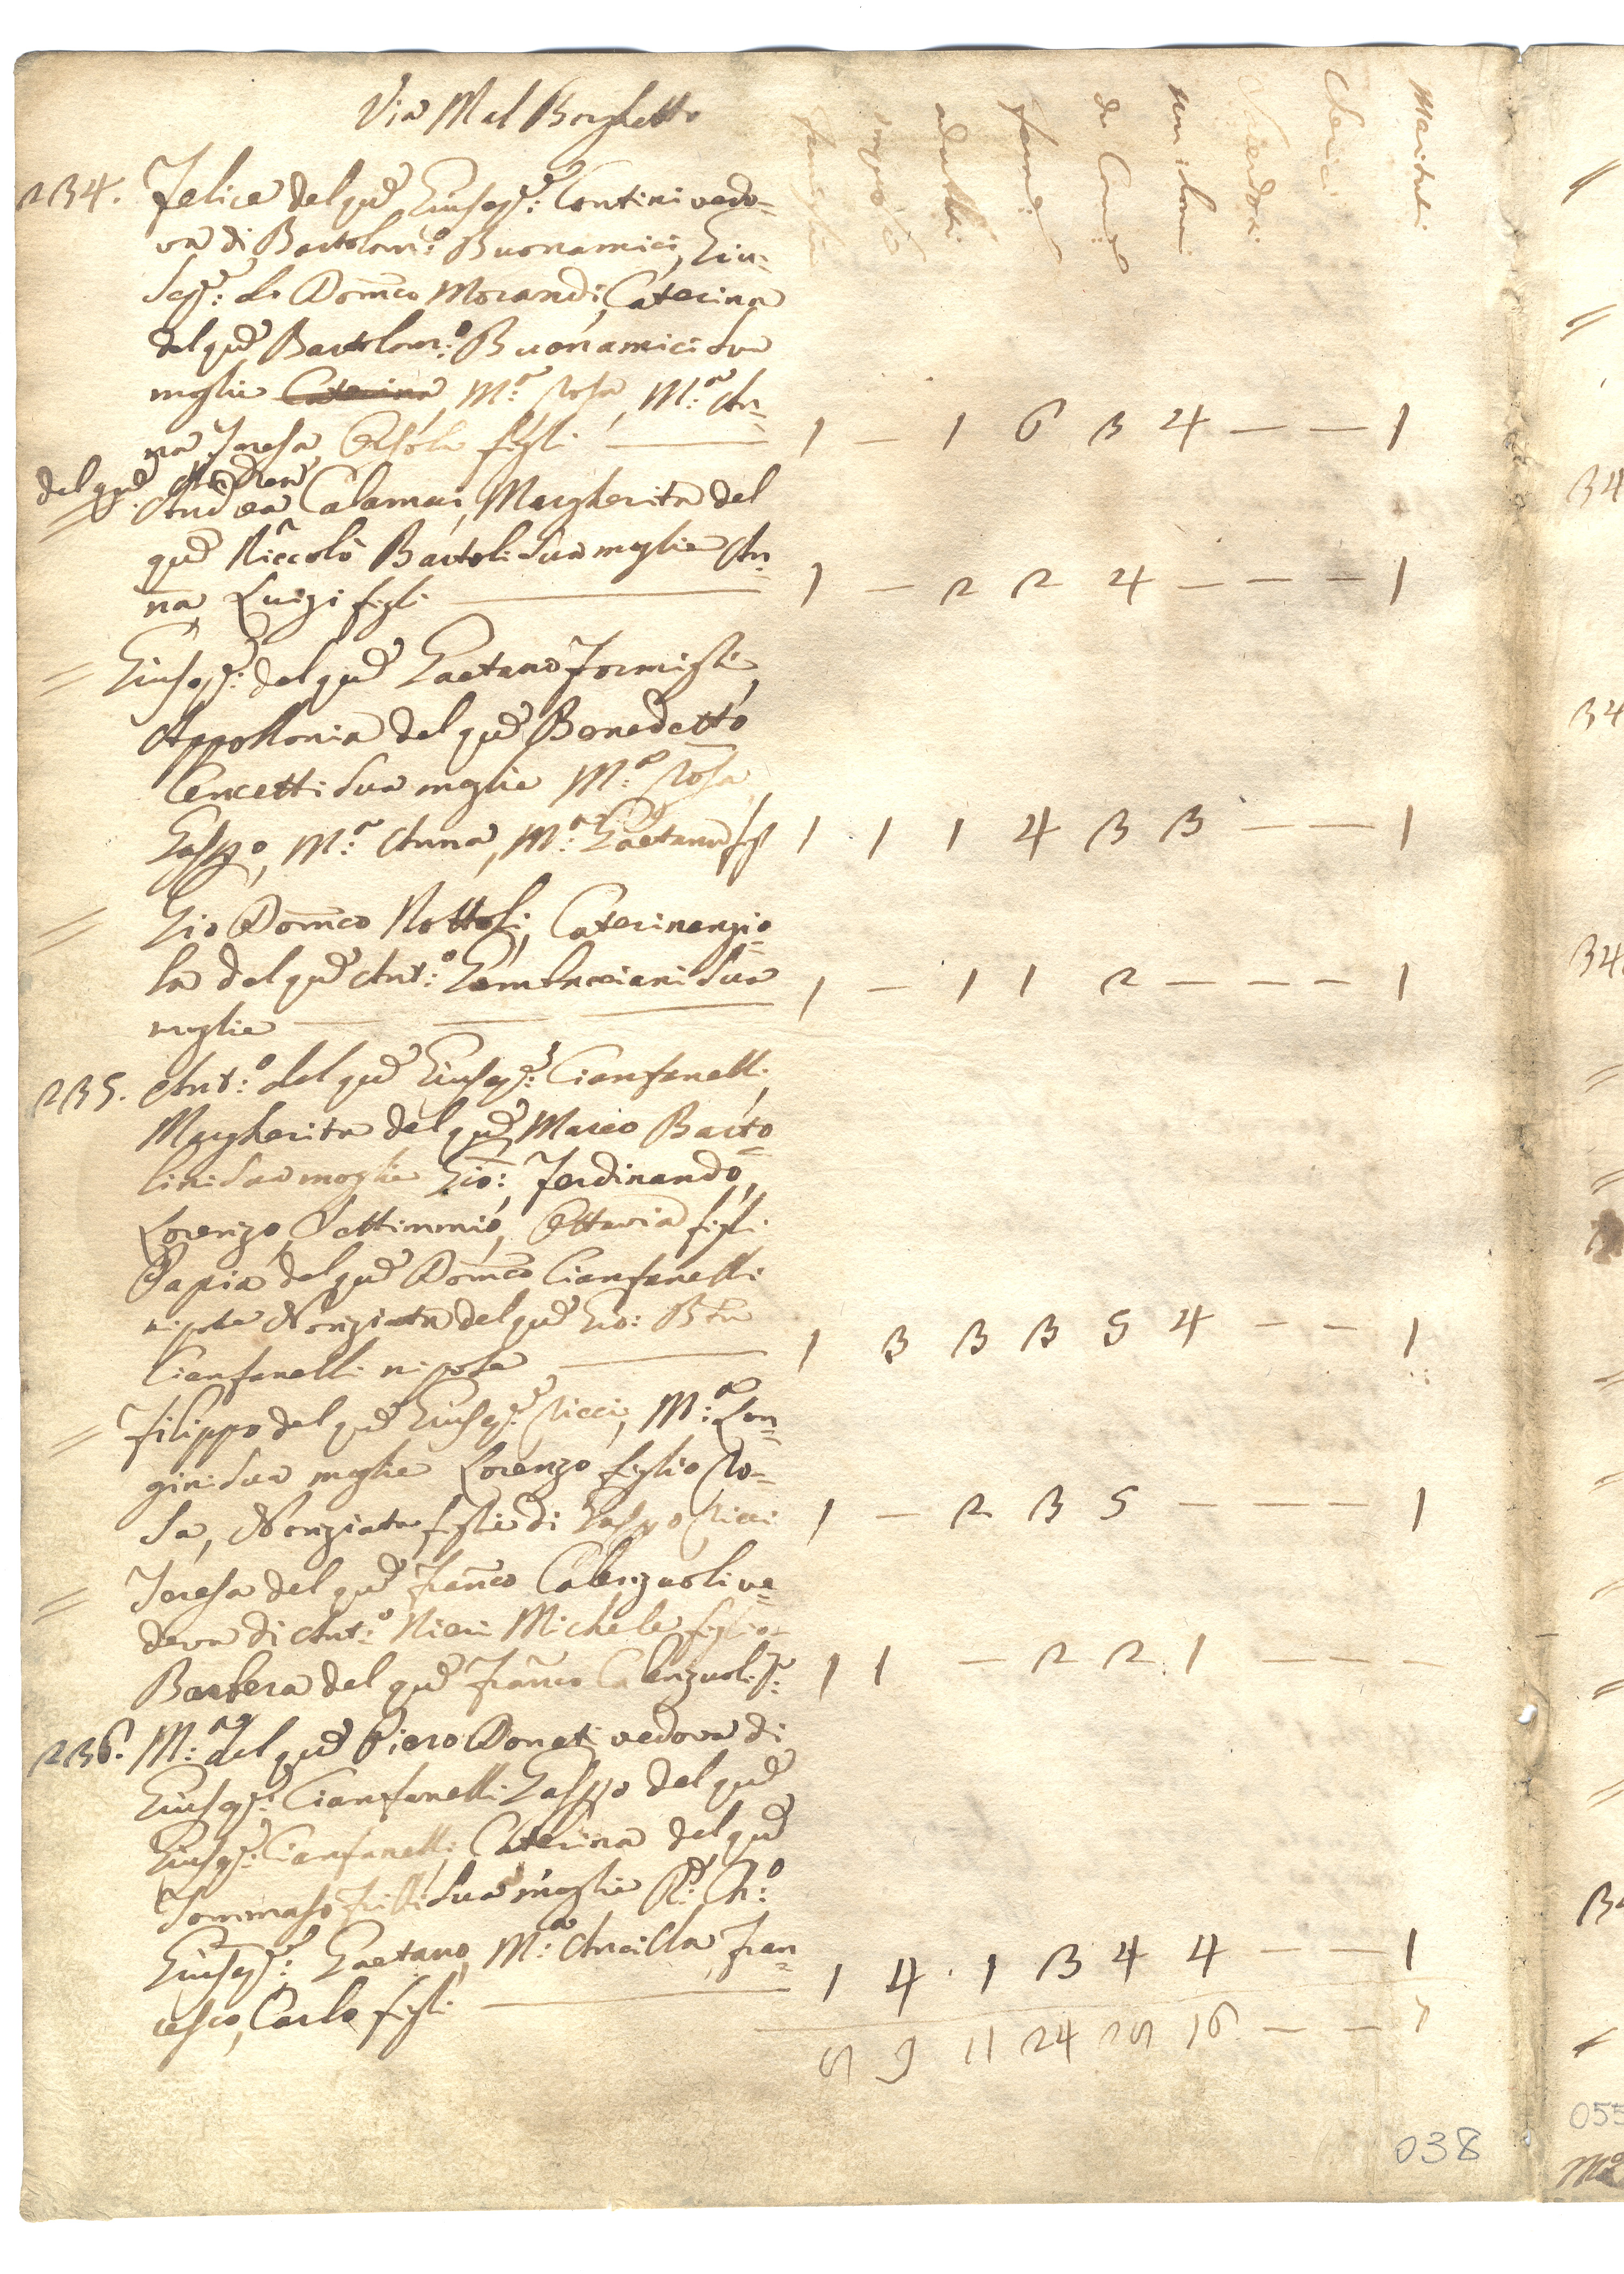 Via Mal Borghetto
famiglie
impub:
adulti
fem:
da Com:
non da Com:
Sacerdoti
Cherici
Maritati
234. Felice del qud Giusepe: Contini vedo=
va di Bartolom:o Buonamici, Giu=
sepe: di Domco Morandi, Caterina
del qud Bartolom:o Buonamici sua
moglie Caterina M:a Rosa, M:a An=
na, Teresa, Orsola figli — 1 — 1 6 3 4 — — 1
del qud Andrea
= Andrea Calamai, Margherita del
qud Niccolò Bartoli sua moglie An=
na, Luigi figli — 1 — 2 2 4 — — — 1
= Giusepe: del qud Gaetano Formigli,
Appollonia del qud Benedetto
Cencetti sua moglie M:a Rosa,
Gaspo, M:a Anna, M:a Gaetana figl 1 1 1 4 3 3 — — 1
= Gio Domco Nottoli, Caterinangio=
la del qud Ant:o sua 1 — 1 1 2 — — — 1
moglie — — —
235. Ant:o del qud Giusepe: Cianfanelli,
Margherita del qud Marco Barto=
lini sua moglie Gio:, Ferdinando,
Lorenzo, Settimmio, Ottavia figli
Papia del qud Domco Cianfanelli
nipote Nonziata del qud Gio: Bta
Cianfanelli nipote — 1 3 3 3 5 4 — — 1
= Filippo del qud Giusepe: Ricci, M:a Lon=
gini sua moglie Lorenzo figlio Ro=
sa, Nonziata figlie di Gaspo Ricci 1 — 2 3 5 — — — 1
= Teresa del qud Franco Calenzuoli ve=
dova di Ant:o Nieri Michele figlio
Barbera del qud Franco Calenzuoli 1 1 — 2 2 1 — — —
236. M:a del qud Piero Donati vedova di
Giusepe: Cianfanelli Gaspo del qud
Giusepe: Cianfanelli, Caterina del qud
Tommaso sua moglie
Giusepe: Gaetano, M:a Ancilla, Fran=
cesco, Carlo figli — 1 4 1 3 4 4 — — 1
9 11 24 16 — — 7
038